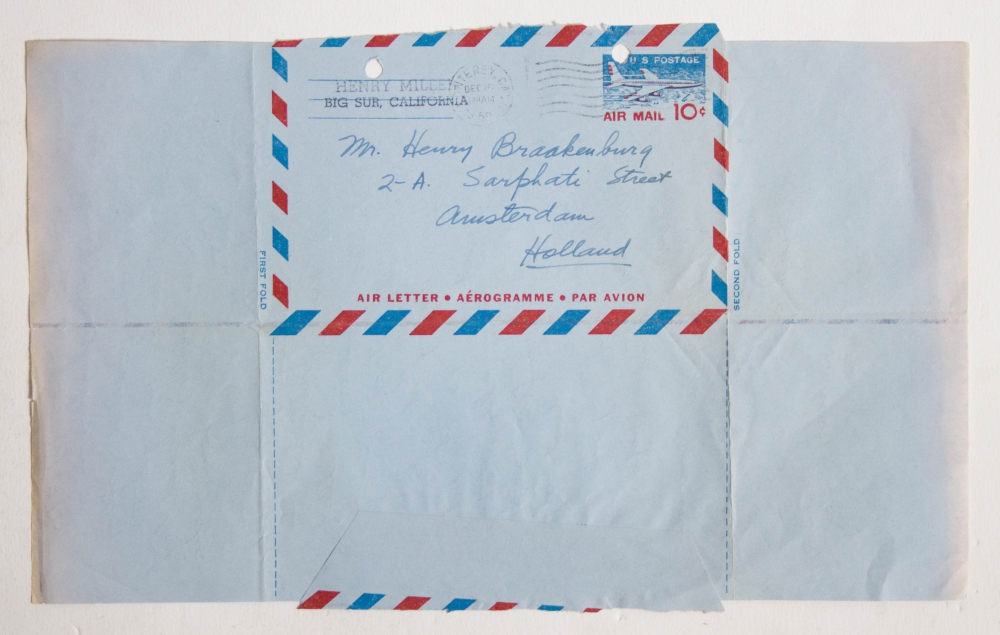 U S POSTAGE
HENRY MILLER
BIG SUR, CALIFORNIA
DEC
AIR MAIL 10¢
Mr. Henry Braakenburg
2-A. Sarphati Street
Amsterdam
Holland
FIRST FOLD
SECOND FOLD
AIR LETTER • AÉROGRAMME • PAR AVION